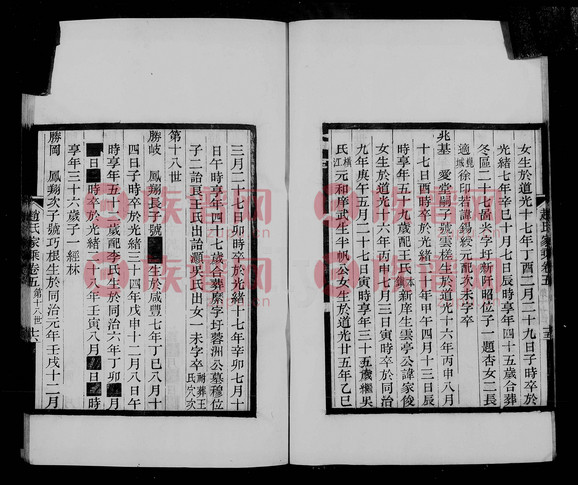 女生於道光十七年丁酉二月二十九日子時卒於
光緒七年辛巳十月七日辰時享年四十五歲合葬
冬區二十七啚米字圩新阡昭位子一題杏女二長
適城徐印若諱錫綬元配次未字卒
兆基 愛堂嗣子號雲梯生於道光十六年丙申八月
十七日酉時卒於光緒二十年甲午四月十三日辰
時享年五十九歲配王氏本鎮新庠生雲亭公諱家俊
女生於道光十六年丙申七月三日寅時卒於同治
九年庚午五月二十七日寅時享年三十五歲繼吳
氏橫江元和庠武生半帆公女生於道光廿五年乙巳
趙氏家乘卷五
三月二十七日卯時卒於光緒十七年辛卯七月十
日午時享年四十七歲合葬縻字圩蓉洲公墓穆位
子二詒良王氏出詒瀕吳氏出女一未字卒祔葬王氏穴次
第十八世
勝岐 鳳翔長子號 生於咸豐七年丁巳八月十
四日子時卒於光緒三十四年戊申十二月八日午
時享年五十二歲配李氏生於同治六年丁卯 月
日 時卒於光緒二十八年壬寅八月 日 時
享年三十六歲子一經林
勝岡 鳳翔次子號巧根生於同治元年壬戌十二月
趙氏家乘卷五 第十八世
族譜網
族譜網
族譜網
族譜網